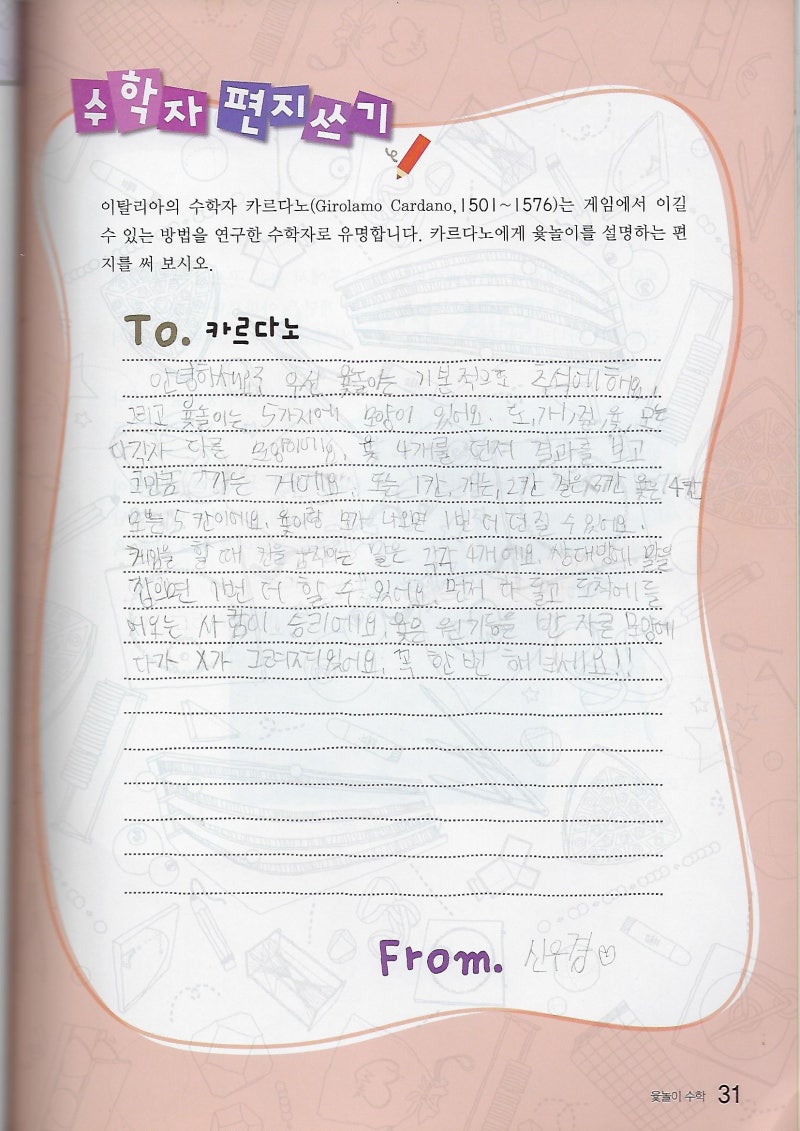 수학자 편지쓰기
이탈리아의 수학자 카르다노(Girolamo Cardano,1501~1576)는 게임에서 이길
수 있는 방법을 연구한 수학자로 유명합니다. 카르다노에게 윷놀이를 설명하는 편
지를 써 보시오.
To. 카르다노
안녕하세요 우선 윷놀이는 기본적으로 추석에 해요.
그리고 윷놀이는 5가지에 모양이 있어요. 도, 개, 걸, 윷, 모는
다 각자 다른 모양이에요. 윷 4개를 던져 결과를 보고
그만큼 가는 거에요. 도는 1칸, 개는, 2칸 걸은 3칸 윷은 4칸
모는 5칸이에요. 윷이랑 모가 나오면 1번 더 던질 수 있어요.
게임을 할 때 칸을 움직이는 말은 각각 4개에요. 상대방에 말을
잡으면 1번 더 할 수 있어요. 먼저 다 돌고 도착에 들
어오는 사람이 승리에요. 윷은 원기둥을 반 자른 모양에
다가 X가 그려져있어요. 꼭 한번 해보세요!!
From. 신우경♡
윷놀이 수학 31